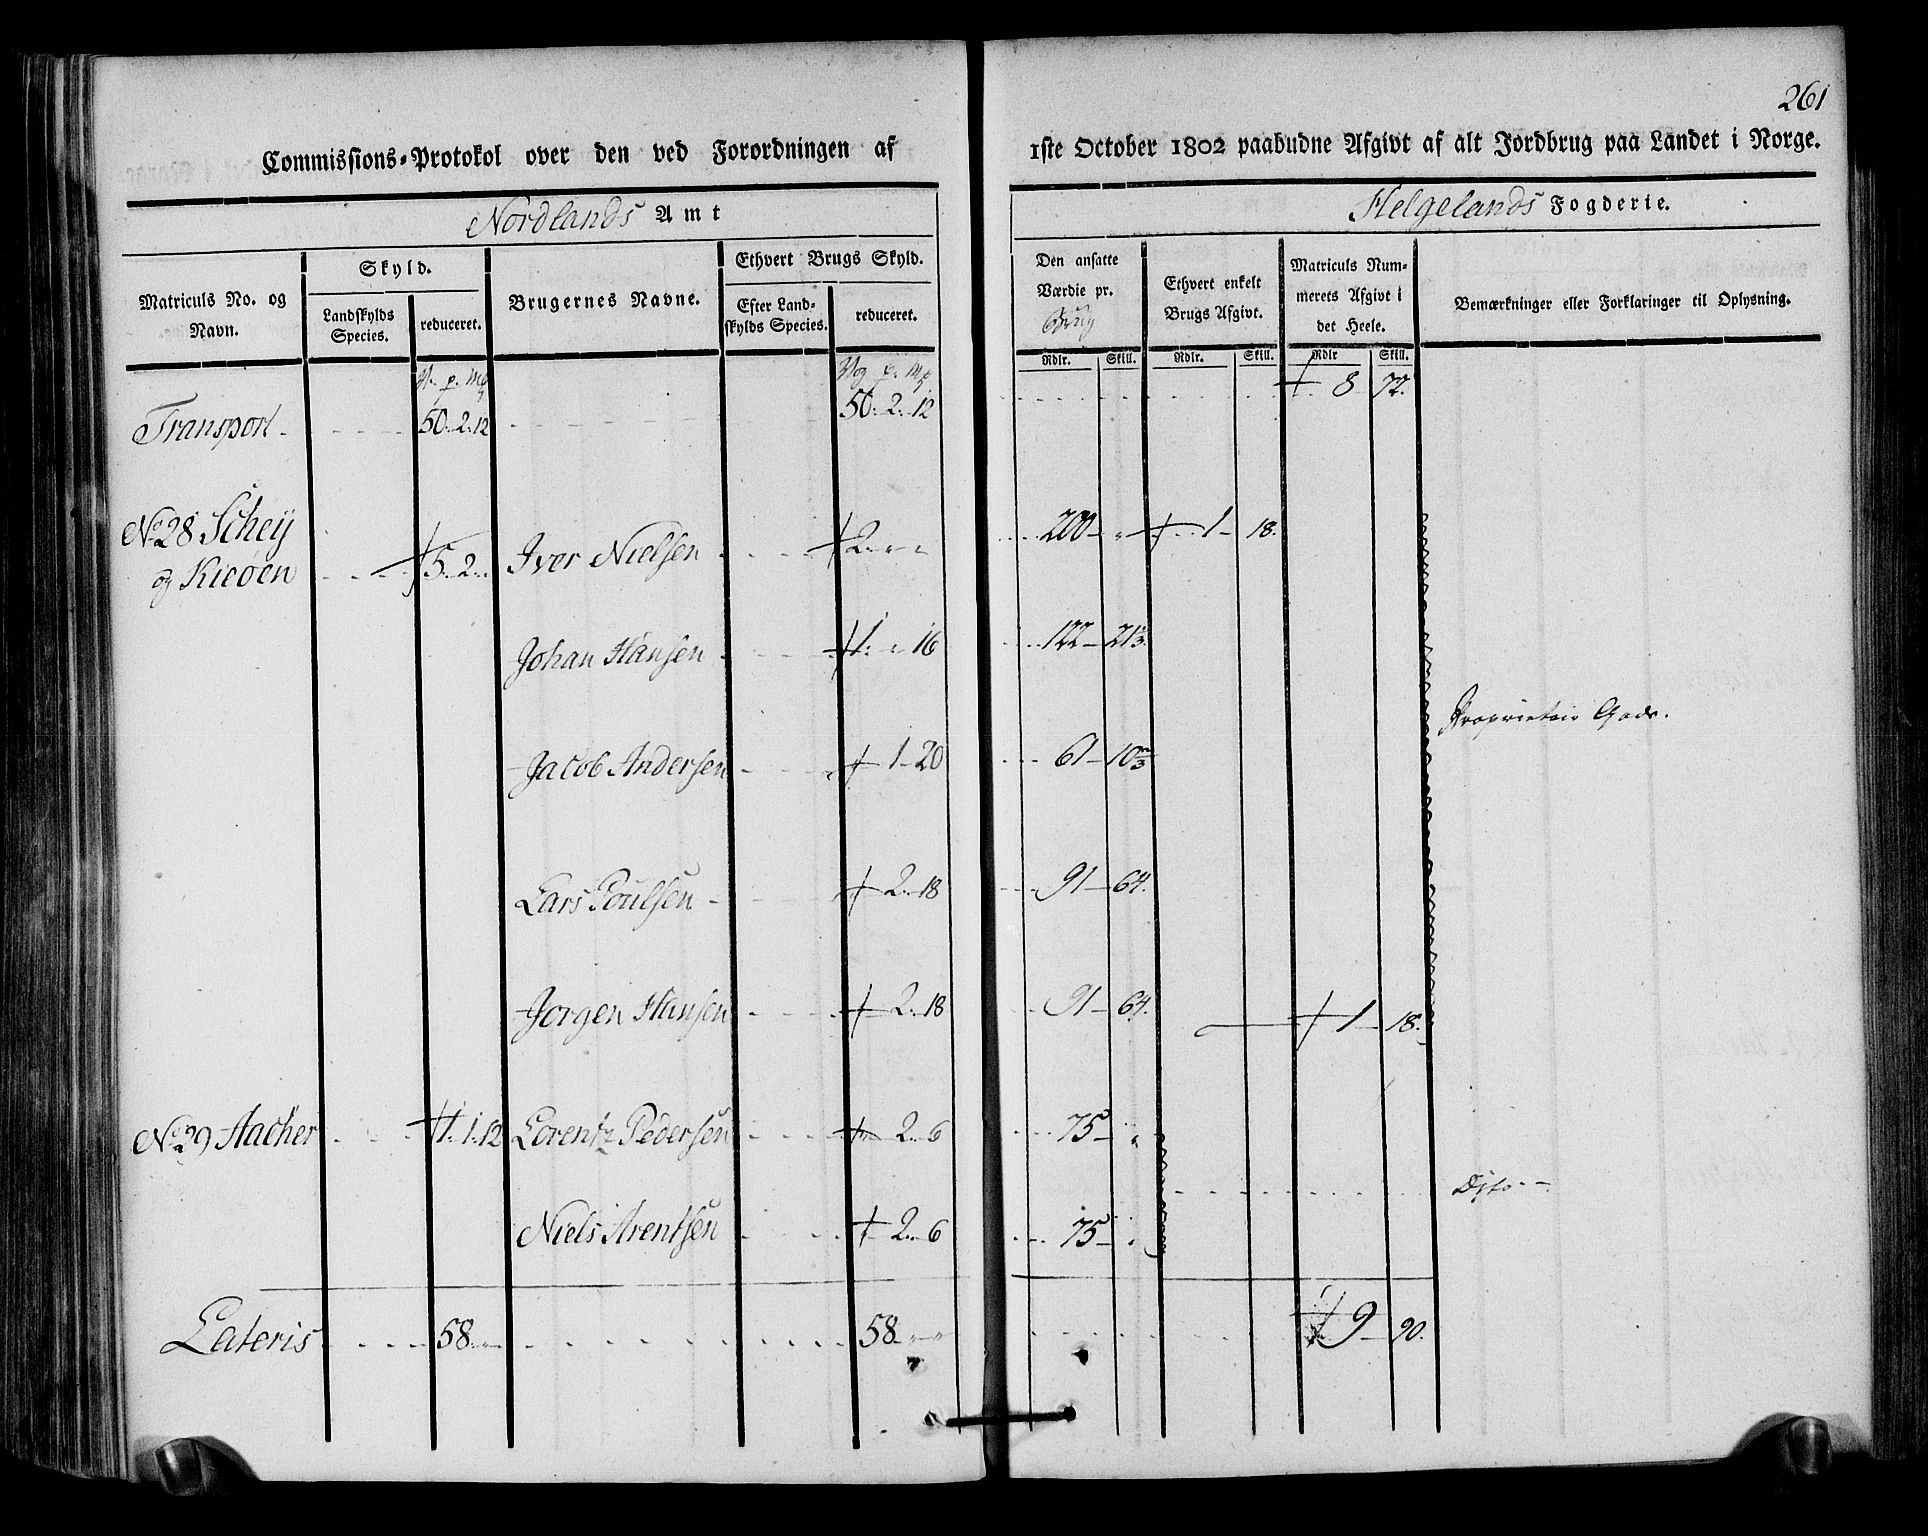 261
Commissions-Protokol over den ved Forordningen af 1ste October 1802 paabudne Afgivt af alt Jordbrug paa Landet i Norge.
Nordlands Amt
Helgelands Fogderie.
Matriculs No. og Navn.
Skyld.
Landskylds Species.
reduceret.
Brugernes Navne.
Ethvert Brugs Skyld.
Efter Landskylds Species.
reduceret.
Den ansatte Værdie pr. Brug
Ethvert enkelt Brugs Afgivt.
Matriculs Nummerets Afgivt i det Heele.
Bemærkninger eller Forklaringer til Oplysning.
Rdlr. Skill. Rdlr. Skill. Rdlr Skill.
V. p. mk
Vog p. mk
Transport 50. 2. 12 50. 2. 12 8 72.
No 28 Schey
og Kieøen 5. 2. Iver Nielsen 2. " " 200 " 1 18.
Johan Hansen 1. " 16 122 21 1/3.
Proprietair Gods.
Jacob Andersen 1 20 61 10 2/3
Lars Poulsen 2. 18 91 64.
Jorgen Hansen 2. 18 91 64. 1 18.
No 29 Aacher 1. 1. 12 Lorentz Pedersen 2. 6 75 "
Dito
Niels Arentsen 2. 6 75 "
Lateris 58. " " 58 " " 9 90.